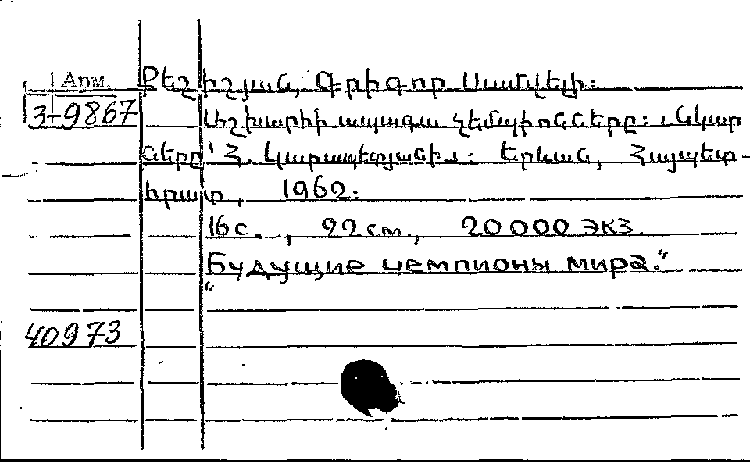 Арм. Քեշիշյան, Գրիգոր Սամվելի:
3-9867 Աշխարհի ապագա չեմպիոնները: Նկար
ները՝ Հ. Կարապետյանի: Երևան, Հայպետ-
հրատ, 1962.
16 с., 22 см., 20000 экз.
„Будущие чемпионы мира.“
40973